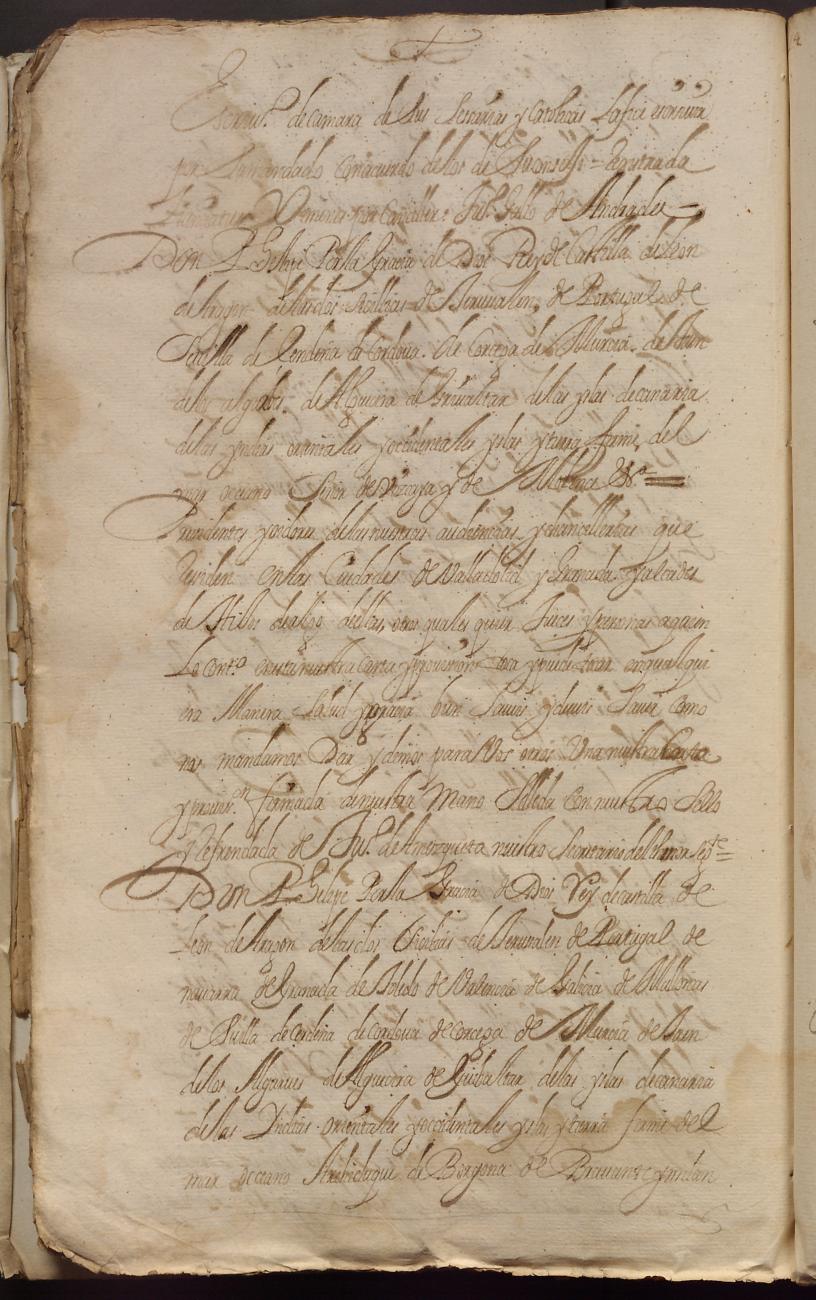 Escriu.º de Camara de Sus Cesarias y Catolicas la fiz escriuir
por Su mandado Con acuerdo de los de Su consejo = Registrada
Jul. Gallo de Andrada =
Don Phelipe Por la Gracia de Dios Rey de Castilla de leon
de aragon de las dos Sicilias de Jerusalen, de Portugal de
Seuilla de Cerdeña de Cordoua. de Corcega de Murcia. de Jaen
de los algarbes. de Algecira de Gibraltar de las yslas de canaria
de las yndias orientales y occidentales yslas y tierra firme, del
mar oceano Señor de Vizcaya y de Molina &.ª =
Presidentes y oidores de las nuestras audiencias y chancillerias que
Residen en las Ciudades de Valladolid y Granada y alcaldes
de Hijos dealgo dellas, otros quales quier Jueces y personas a quien
Lo cont.º en esta nuestra carta y prouision toca y puede tocar en qualqui
era Manera Salud y gracia bien Saueis y deueis Sauer Como
nos mandamos Dar y dimos para Vos otros Una nuestra Carta
y prouis.on firmada de nuestra Mano Sellada Con nuestro Sello
y Refrendada de Ju.º de Amezqueta nuestro Secretario del thenor sig.te =
Don Phelipe Por la Gracia de Dios Rey de castilla de
Leon de Aragon de las dos Cicilias de Jerusalen de Portugal de
nauarra de Granada de Toledo de Valencia de Galicia de Mallorcas
de Seuilla de Cerdeña de Cordoua de Corcega de Murcia de Jaen
de los Algarues de Algecira de Guibaltar de las yslas de canaria
de las Indias orientales y occidentales yslas y tierra firme del
mar oceano Archiduque de Borgoña de Brauante y milan